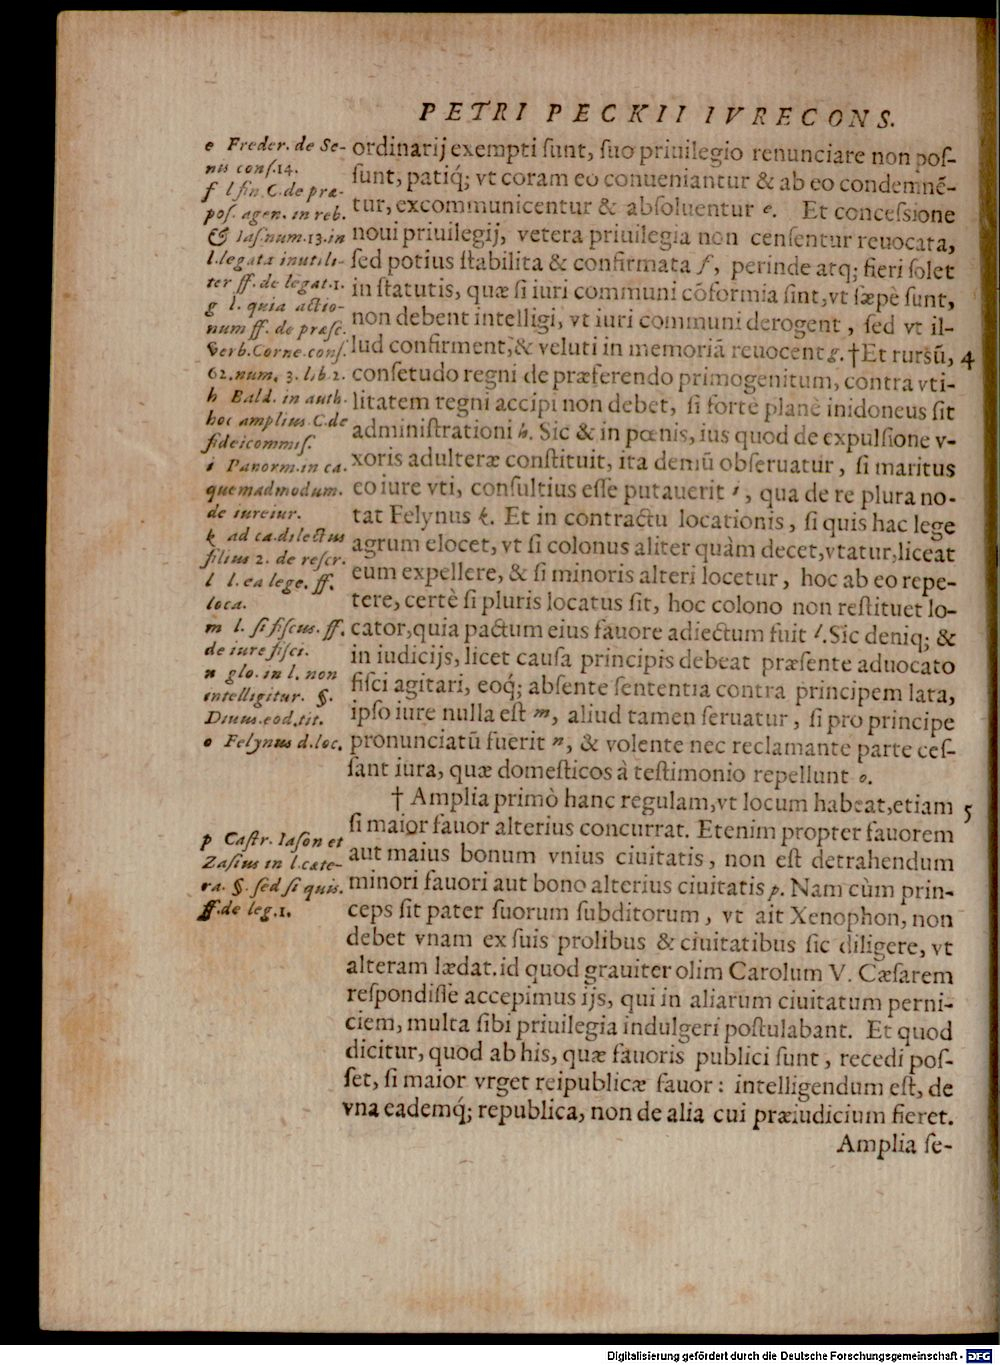 PETRI PECKII IVRECONS.
ordinarij exempti ſunt, ſuo priuilegio renunciare non poſ-
ſunt, patiq́; vt coram eo conueniantur & ab eo condemnẽ-
tur, excommunicentur & abſoluentur e. Et conceſsione
noui priuilegij, vetera priuilegia non cenſentur reuocata,
ſed potius ſtabilita & confirmata f, perinde atq; fieri ſolet
in ſtatutis, quæ ſi iuri communi cõformia ſint, vt ſæpè ſunt,
non debent intelligi, vt iuri communi derogent, ſed vt il-
lud confirment, & veluti in memoriã reuocent g. †Et rursũ, 4
conſetudo regni de præferendo primogenitum, contra vti-
litatem regni accipi non debet, ſi fortè planè inidoneus ſit
adminiſtrationi h. Sic & in pœnis, ius quod de expulſione v-
xoris adulteræ conſtituit, ita demũ obſeruatur, ſi maritus
eo iure vti, conſultius eſſe putauerit i, qua de re plura no-
tat Felynus k. Et in contractu locationis, ſi quis hac lege
agrum elocet, vt ſi colonus aliter quàm decet, vtatur, liceat
eum expellere, & ſi minoris alteri locetur, hoc ab eo repe-
tere, certè ſi pluris locatus ſit, hoc colono non reſtituet lo-
cator, quia pactum eius fauore adiectum fuit l. Sic deniq; &
in iudicijs, licet cauſa principis debeat præſente aduocato
fiſci agitari, eoq́; abſente ſententia contra principem lata,
ipſo iure nulla eſt m, aliud tamen ſeruatur, ſi pro principe
pronunciatũ fuerit n, & volente nec reclamante parte ceſ-
ſant iura, quæ domeſticos à teſtimonio repellunt o.
† Amplia primò hanc regulam, vt locum habeat, etiam 5
ſi maior fauor alterius concurrat. Etenim propter fauorem
aut maius bonum vnius ciuitatis, non eſt detrahendum
minori fauori aut bono alterius ciuitatis p. Nam cùm prin-
ceps ſit pater ſuorum ſubditorum, vt ait Xenophon, non
debet vnam ex ſuis prolibus & ciuitatibus ſic diligere, vt
alteram lædat. id quod grauiter olim Carolum V. Cæſarem
reſpondiſſe accepimus ijs, qui in aliarum ciuitatum perni-
ciem, multa ſibi priuilegia indulgeri poſtulabant. Et quod
dicitur, quod ab his, quæ fauoris publici ſunt, recedi poſ-
ſet, ſi maior vrget reipublicæ fauor: intelligendum eſt, de
vna eademq́; republica, non de alia cui præiudicium fieret.
Amplia ſe-
e Freder. de Se-
nis conſ. 14.
f l fin. C. de præ-
poſ. agen. in reb.
& Iaſ. num. 13. in
l. legata inutili-
ter ff. de legat. 1.
g l. quia actio-
num ff. de præſc.
verb. Corne. conſ.
62. num. 3. lib. 2.
h Bald. in auth.
hoc amplius C. de
fideicommiſ.
i Panorm. in ca.
quemadmodum.
de iureiur.
k ad ca. dilectus
filius 2. de reſcr.
l l. ea lege. ff.
loca.
m l. ſi fiſcus. ff.
de iure fiſci.
n glo. in l. non
intelligitur. §.
Diuus. eod. tit.
o Felynus d. loc.
p Caſtr. Iaſon et
Zaſius in l. cæte-
ra. §. ſed ſi quis.
ff. de leg. 1.
Digitalisierung gefördert durch die Deutsche Forschungsgemeinschaft - DFG